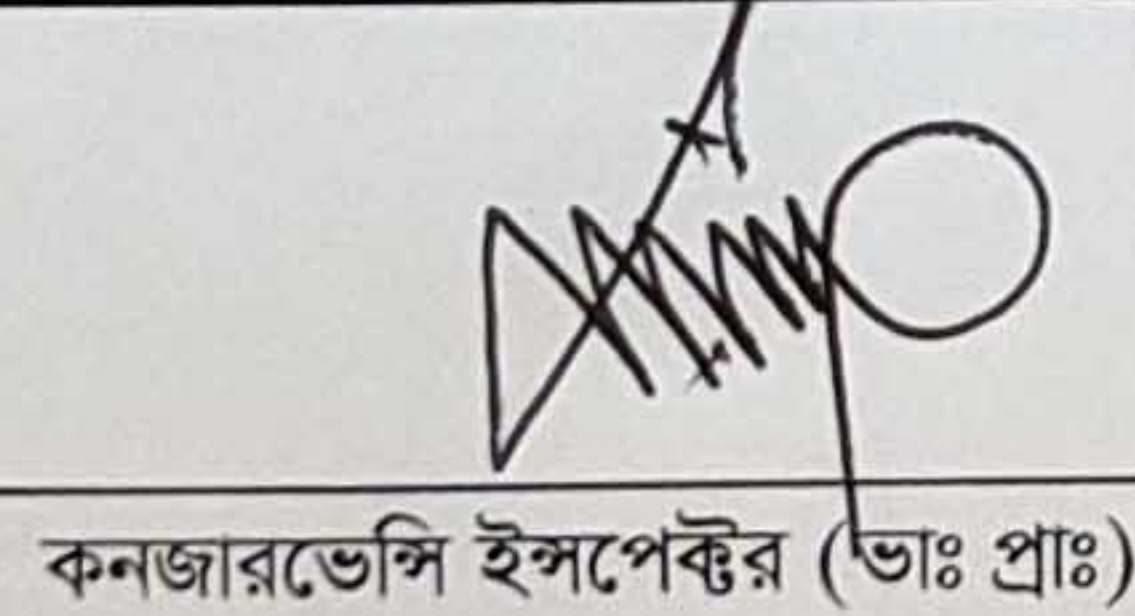 কনজারভেন্সি ইন্সপেক্টর (ভাঃ প্রাঃ)